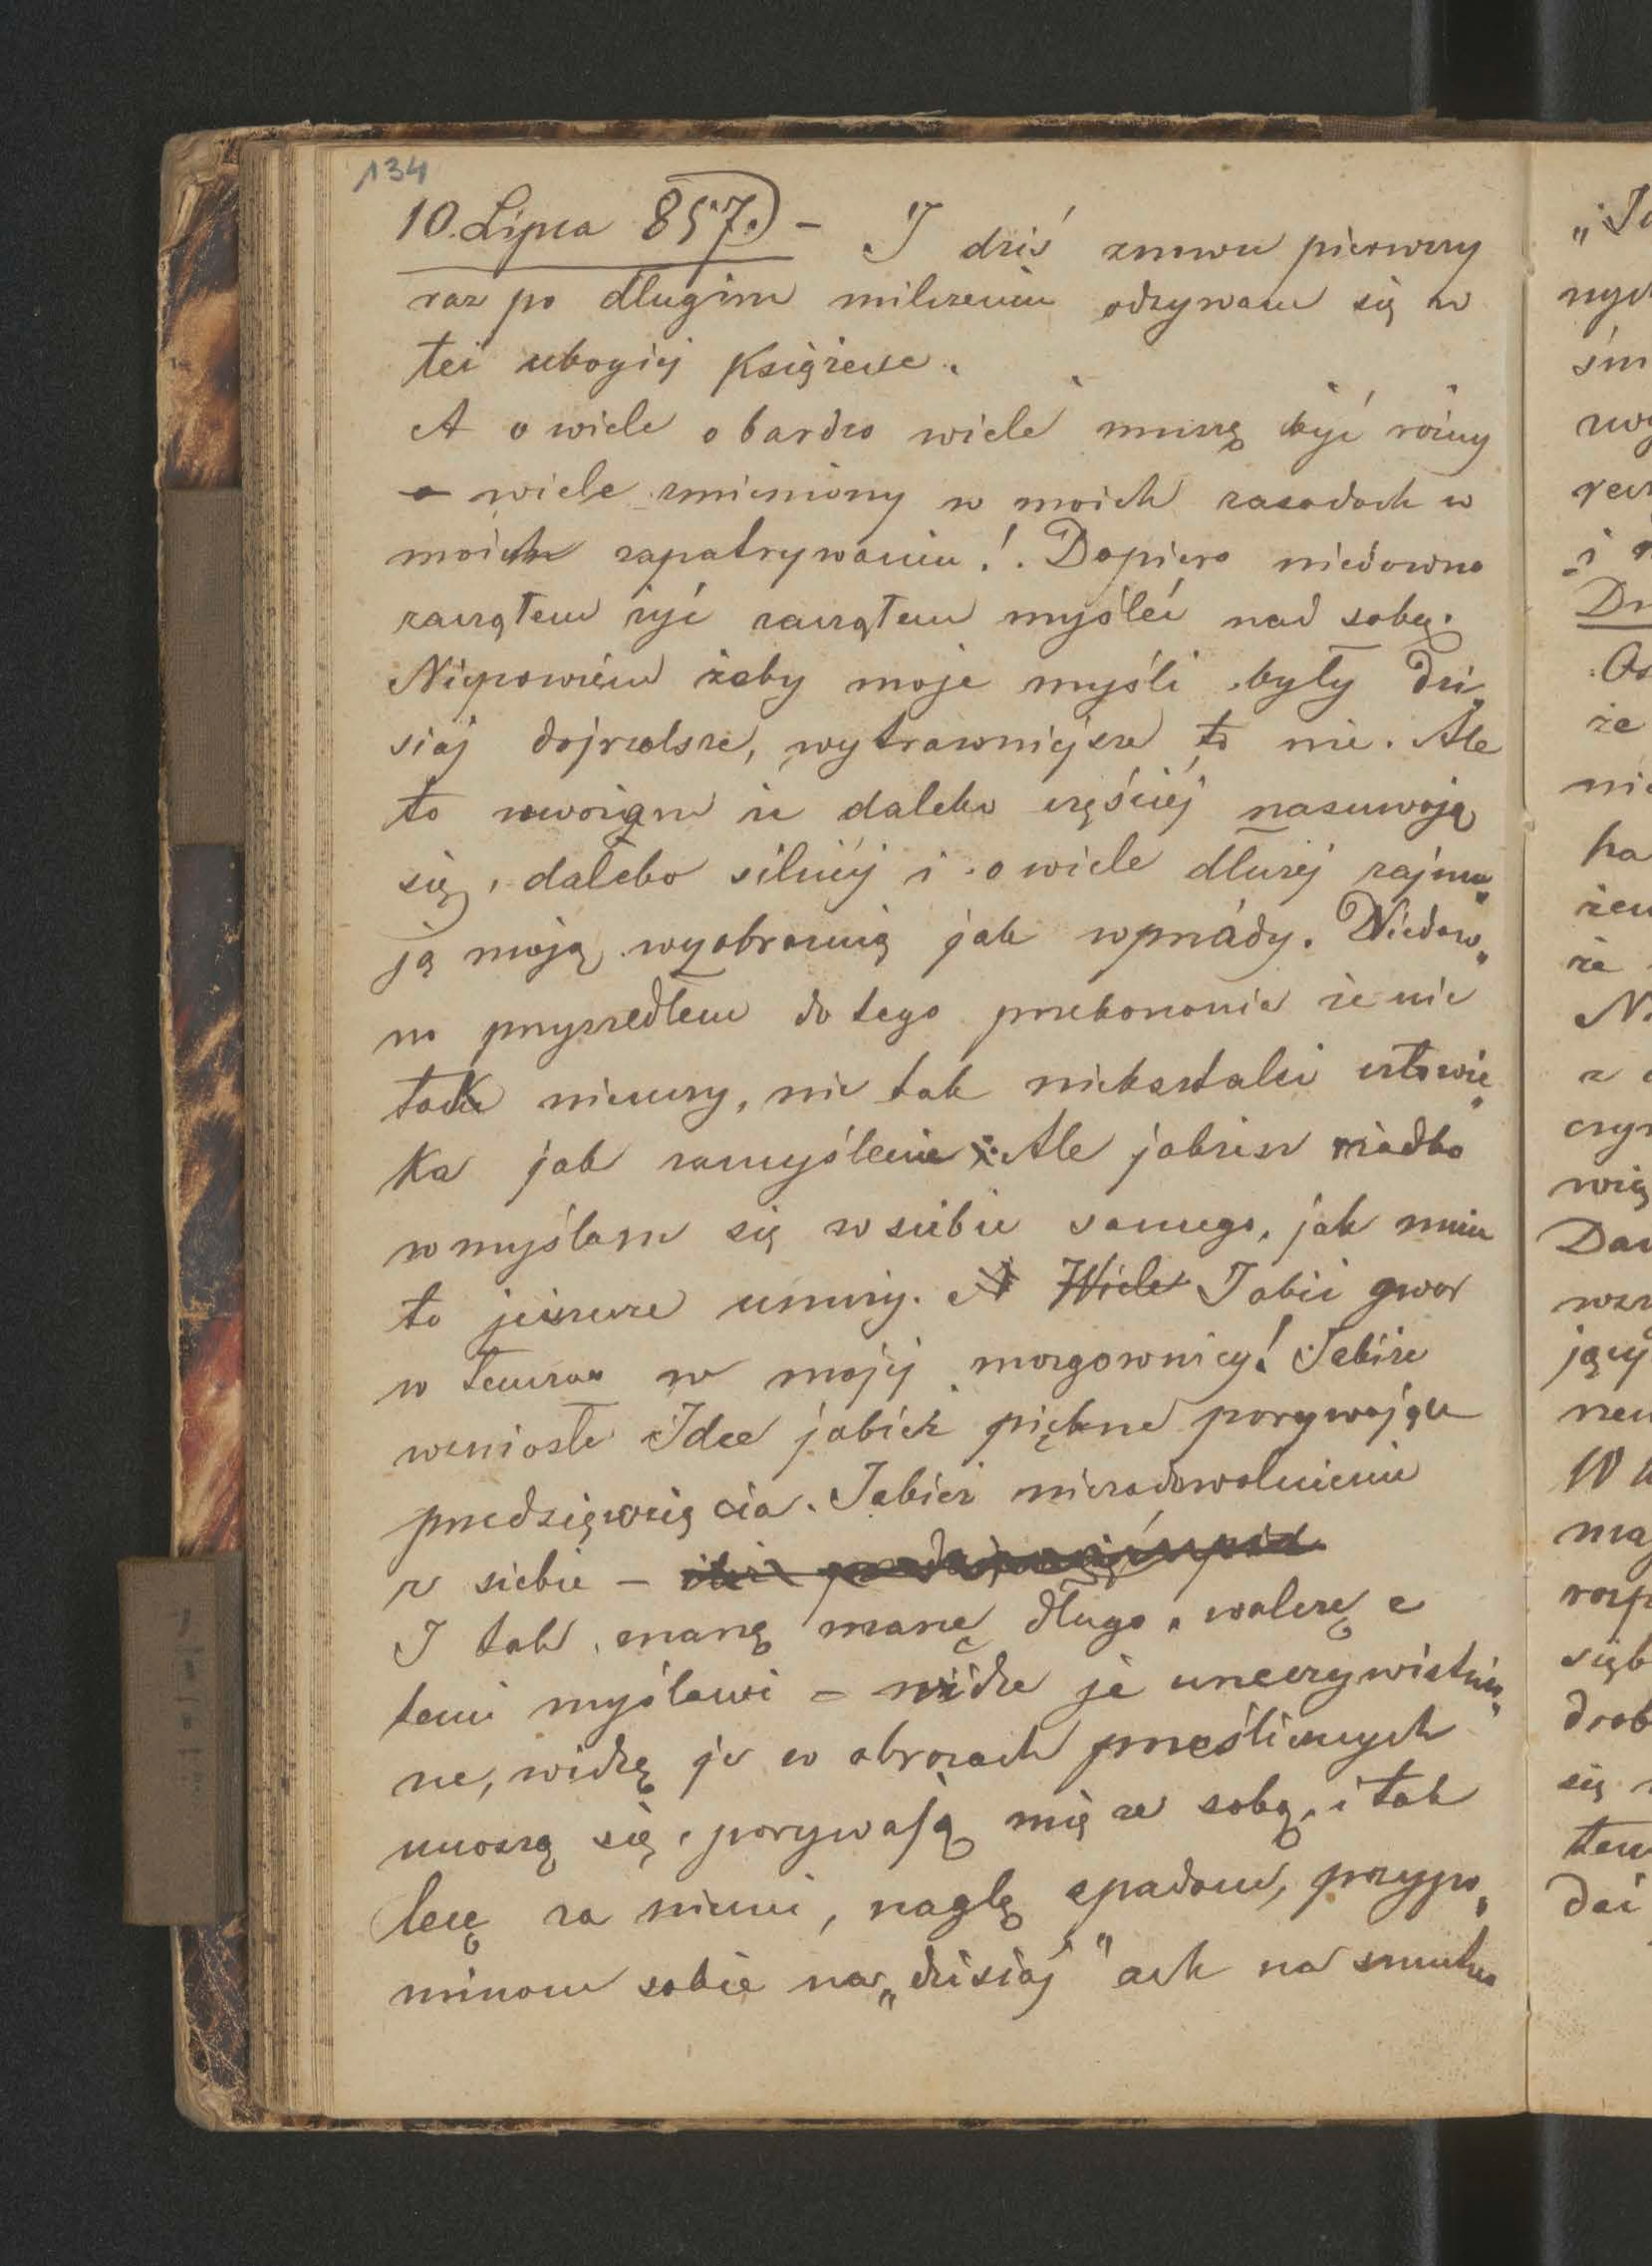 134
10. Lipca 857.) - I dziś znowu pierwszy
raz po długim milczeniu odzywam się w
tei ubogiej Książeczce.
A o wiele o bardzo wiele muszę być różny
o wiele zmieniony w moich zasadach w
moich zapatrywaniu!. Dopiero niedawno
zacząłem żyć zacząłem myśleć nad sobą.
Niepowiem żeby moje myśli były dzi„
siaj dojrzalsze, wytrawniejsze to nie. Ale
to uważam że daleko częściej nasuwają
się, daleko silniej i o wiele dłużej zajmu„
ją moją wyobraźnią jak wprzódy. Niedaw„
no przyszedłem do tego przekonania że nic
tak nieuczy, nic tak niekształci człowie„
ka jak zamyślenie. Ale jakżesz rzadko
wmyślam się w siebie samego, jak mnie
to jeszcze nuży. A Wiele Jakiś gwar
w tenczas w mojej mozgownicy! Jakże
wzniosłe Idee jakież piękne porywające
przedsięwzięcia. Jakież niezadowolnienie
z siebie -
I tak marzę marzę długo, walczę z
temi myślami - widze je urzeczywistnio„
ne, widzę je w obrazach prześlicznych
unoszą się, porywają mię ze sobą, i tak
lecę za niemi, naglę spadam, przypo„
minam sobie na „dzisiaj" ach na smutne
„
nych
śm
i
Dr
że
nie
ka
że
z
Daw
jący
W
ma
się
tem